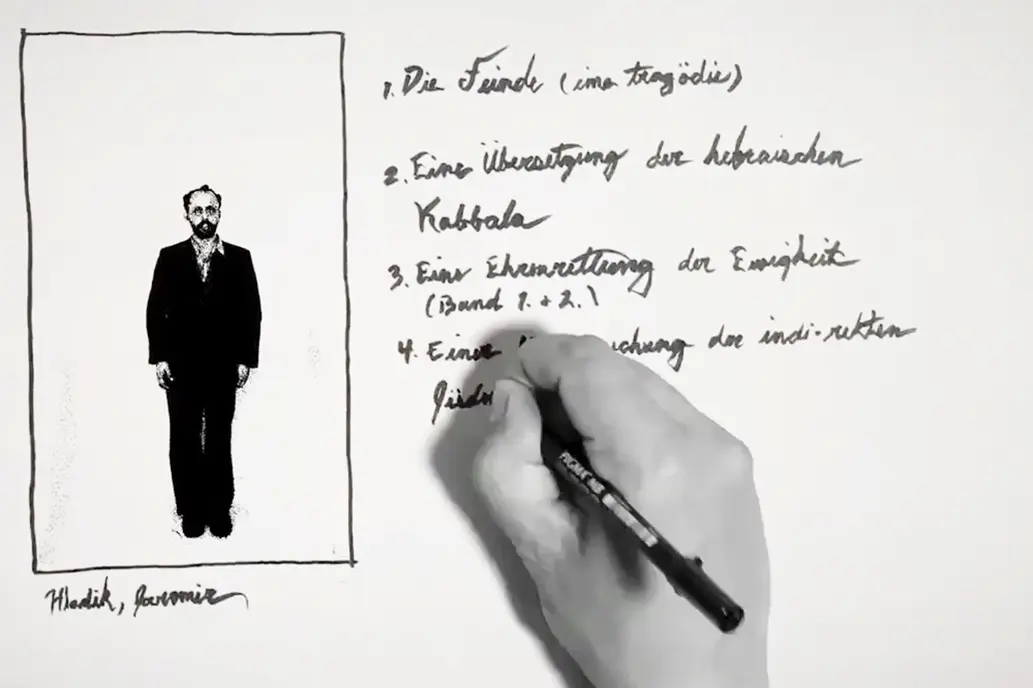 1. Die Feinde (eine tragödie)
2. Eine Übersetzung der hebraischen
Kabbala
3. Eine Ehrenrettung der Ewigkeit
(Band 1. + 2.)
4. Eine der indi-rekten
Hladik, Jaromir